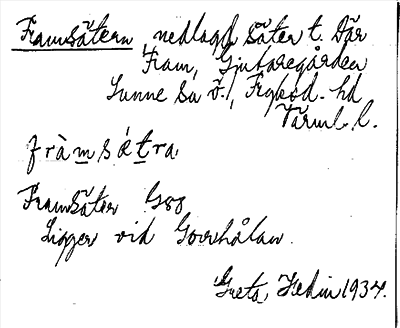 Framsätern nedlagd säter t. Där
Fram, Gjutaregården
Sunne sn ö., Fryksd. hd
Värml. l.
fràmsǽtra
Framsäter G88
Ligger vid Gorrhålan.
Greta Hedin 1934.